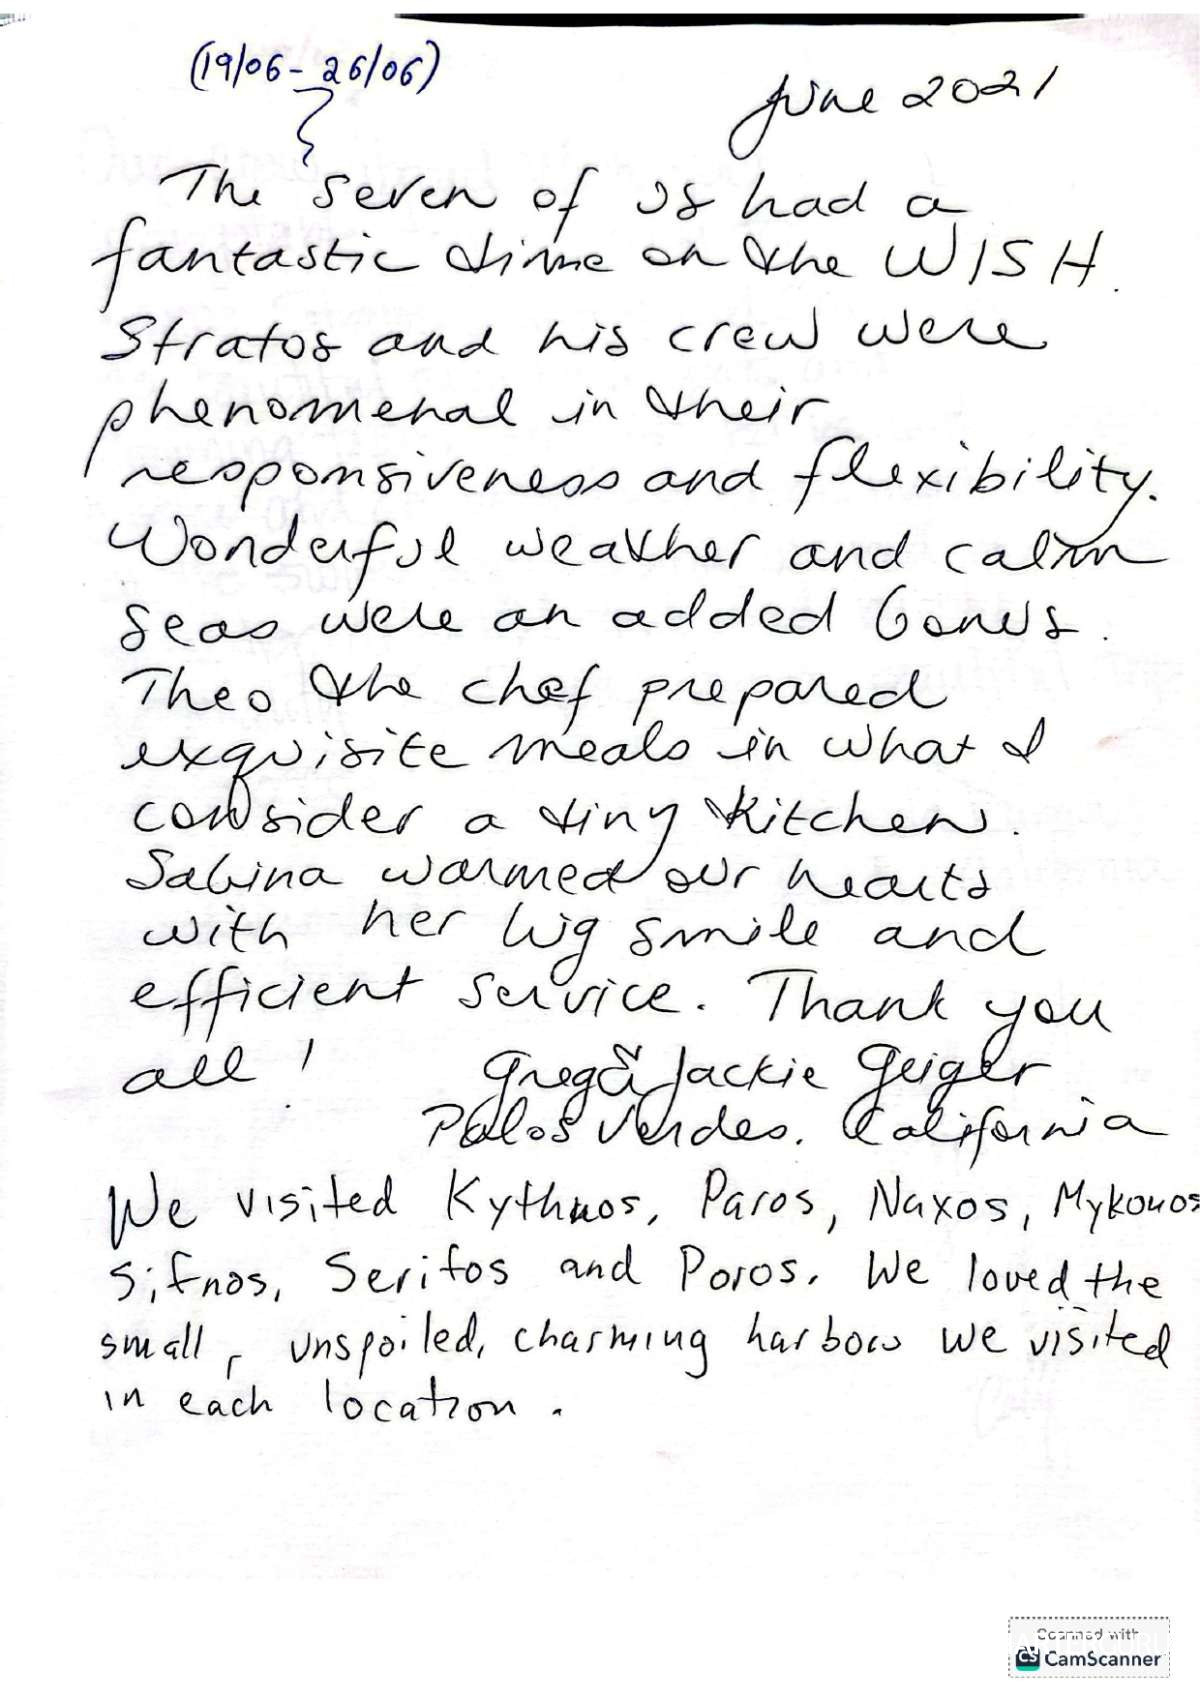 (19/06 - 26/06)
June 2021
The seven of us had a
fantastic time on the WISH.
Stratos and his crew were
phenomenal in their
responsiveness and flexibility.
Wonderful weather and calm
seas were an added bonus.
Theo the chef prepared
exquisite meals in what I
consider a tiny kitchen.
Sabina warmed our hearts
with her big smile and
efficient service. Thank you
all!
Greg & Jackie Geiger
Palos Verdes, California
We visited Kythnos, Paros, Naxos, Mykonos
Sifnos, Serifos and Poros. We loved the
small, unspoiled, charming harbors we visited
in each location.
Scanned with
CS CamScanner